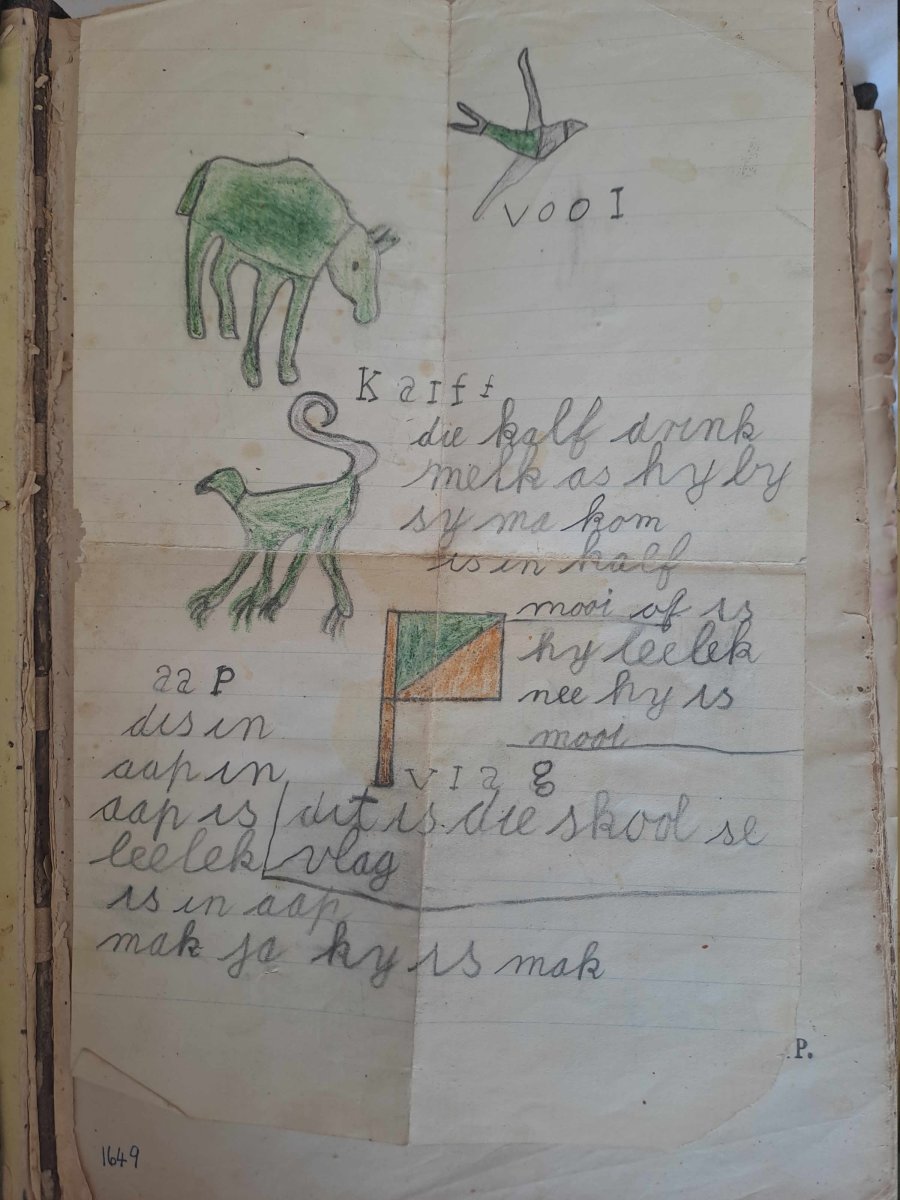 vool
Kalff
die kalf drink
melk as hy by
sy ma kom
is in kalf
mooi of is
hy leelek
nee hy is
mooi
aap
dis in
aap in
aap is
leelek
is in aap
mak ja hy is mak
vlag
dit is die skool se
vlag
P.
1649